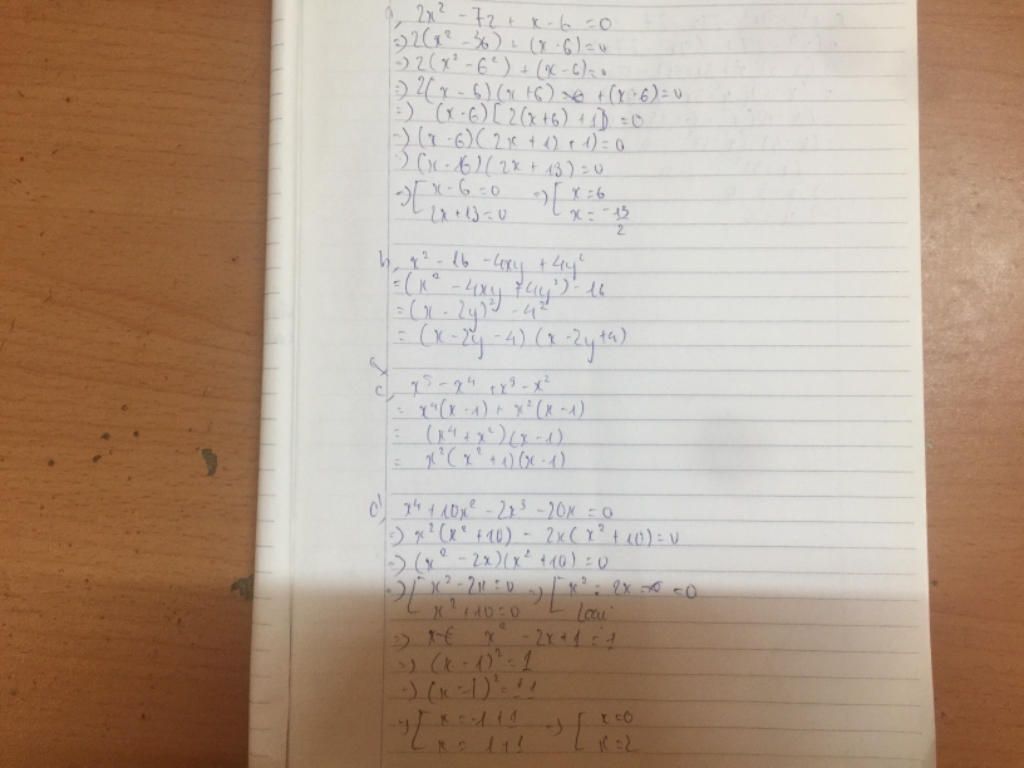 a, 2x² - 72 + x - 6 = 0
=) 2(x² - 36) + (x - 6) = 0
=) 2(x² - 6²) + (x - 6) = 0
=) 2(x - 6)(x + 6) + (x - 6) = 0
=) (x - 6)[2(x + 6) + 1] = 0
=) (x - 6)(2x + 12 + 1) = 0
=) (x - 16)(2x + 13) = 0
=) [ x - 6 = 0 =) [ x = 6
2x + 13 = 0 x = -13/2
b, x² - 16 - 4xy + 4y²
= (x² - 4xy + 4y²) - 16
= (x - 2y)² - 4²
= (x - 2y - 4)(x - 2y + 4)
c, x⁵ - x⁴ + x³ - x²
= x⁴(x - 1) + x²(x - 1)
= (x⁴ + x²)(x - 1)
= x²(x² + 1)(x - 1)
d, x⁴ + 10x² - 2x³ - 20x = 0
=) x²(x² + 10) - 2x(x² + 10) = 0
=) (x² - 2x)(x² + 10) = 0
=) [ x² - 2x = 0 =) [ x² - 2x = 0
x² + 10 = 0 loại
=) x² - 2x + 1 = 1
=) (x - 1)² = 1
=) (x - 1)² = ±1
=) [ x = -1 + 1 =) [ x = 0
x = 1 + 1 x = 2